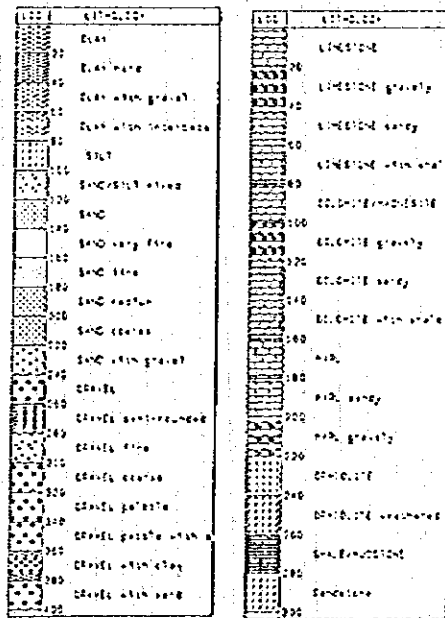 LOG LITHOLOGY
CLAY
20
CLAY hard
40
CLAY with gravel
60
CLAY with
80
SILT
100
SAND/SILT mixed
120
SAND
140
SAND very fine
160
SAND fine
180
SAND medium
200
SAND coarse
220
SAND with gravel
240
GRAVEL
260
GRAVEL semi-rounded
280
GRAVEL fine
GRAVEL coarse
320
GRAVEL
340
GRAVEL with
360
GRAVEL with clay
380
GRAVEL with sand
400
LOG LITHOLOGY
LIMESTONE
20
LIMESTONE gravely
40
LIMESTONE sandy
60
LIMESTONE with shal
80
DOLOMITE/MAGNESITE
100
DOLOMITE gravely
120
DOLOMITE sandy
140
DOLOMITE with shale
160
MARL
180
MARL sandy
200
MARL gravely
220
OPHIOLITE
240
OPHIOLITE weathered
260
SHALE/MUDSTONE
280
Sandstone
300